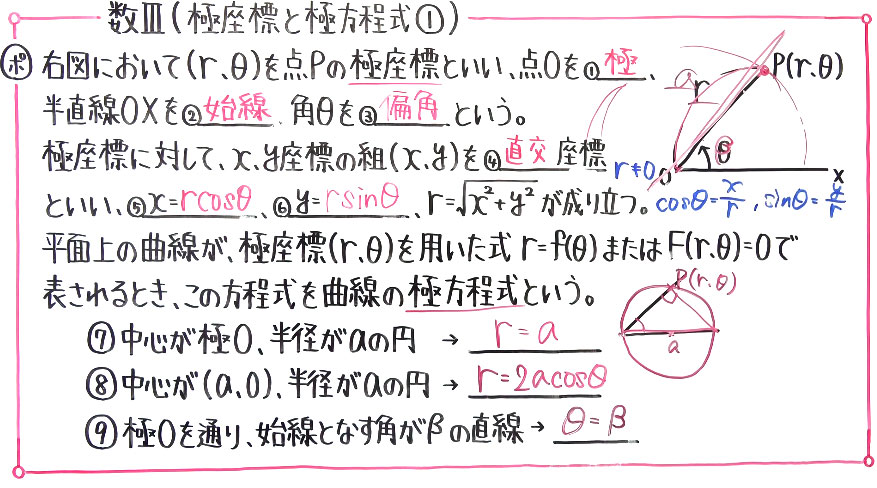 数Ⅲ(極座標と極方程式①)
ポ 右図において(r、θ)を点Pの極座標といい、点Oを①極、
半直線OXを②始線、角θを③偏角という。
極座標に対して、x、y座標の組(x、y)を④直交座標
といい、⑤x=rcosθ、⑥y=rsinθ、r=√x²+y²が成り立つ。
平面上の曲線が、極座標(r、θ)を用いた式r=f(θ)またはF(r、θ)=0で
表されるとき、この方程式を曲線の極方程式という。
⑦中心が極O、半径がaの円 → r=a
⑧中心が(a、0)、半径がaの円 → r=2acosθ
⑨極Oを通り、始線となす角がβの直線 → θ=β
P(r、θ)
a
r
θ
r≠0
O
X
cosθ=x/r , sinθ=y/r
P(r、θ)
a